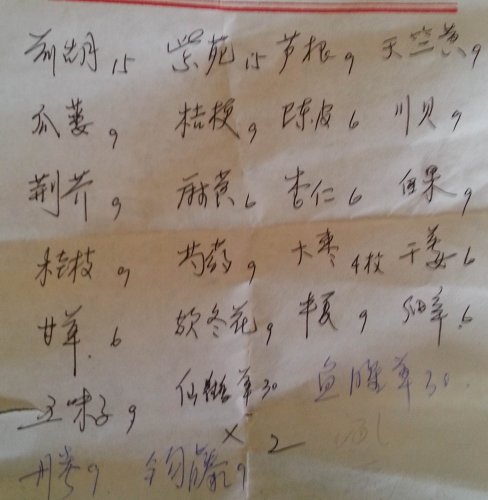 前胡15 紫苑15 芦根9 天竺黄9
瓜蒌9 桔梗9 陈皮6 川贝9
荆芥9 麻黄6 杏仁6 白果9
桂枝9 芍药9 大枣4枚 干姜6
甘草.6 款冬花9 半夏9 细辛.6
五味子9 仙鹤草30 鱼腥草30.
×2
9 钩藤9